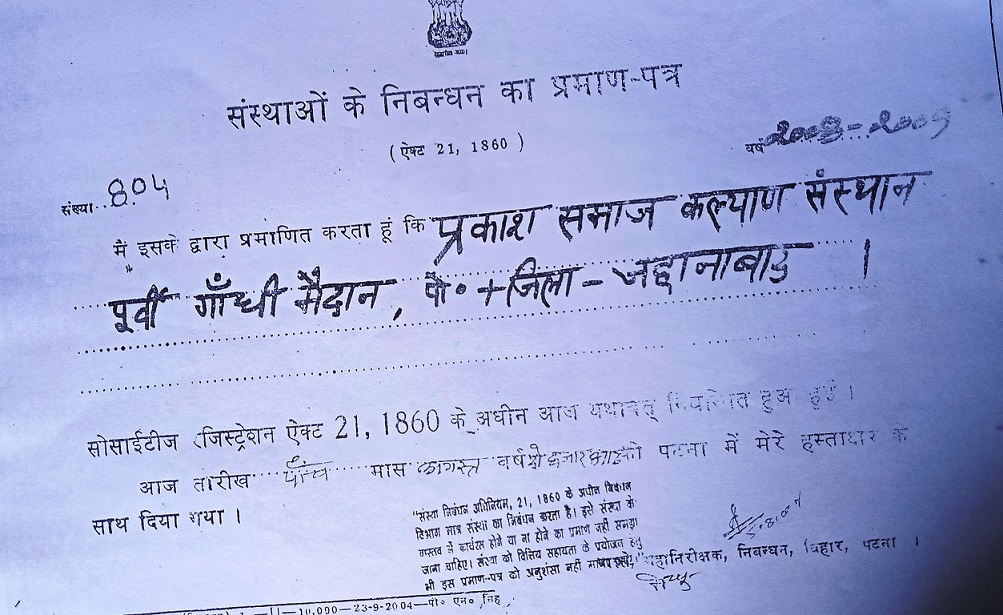 संस्थाओं के निबन्धन का प्रमाण-पत्र
( ऐक्ट 21, 1860 )
वर्ष 2008-2009
संख्या..804
मैं इसके द्वारा प्रमाणित करता हूं कि प्रकाश समाज कल्याण संस्थान
पूर्वी गाँधी मैदान, पो० + जिला - जहानाबाद ।
सोसाईटीज रजिस्ट्रेशन ऐक्ट 21, 1860 के अधीन आज यथावत् निबन्धित हुअ हुई ।
आज तारीख पाँच मास अगस्त वर्ष दो हजार आठ को पटना में मेरे हस्ताक्षर के
साथ दिया गया ।
"संस्था निबंधन अधिनियम, 21, 1860 के अधीन निबंधन
विभाग मात्र संस्था का निबंधन करता है। इसे संस्था के
वास्तव में कार्यरत होने या ना होने का प्रमाण नहीं समझा
जाना चाहिए। संस्था को वित्तिय सहायता के प्रयोजन हेतु
भी इस प्रमाण-पत्र को अनुशंसा नहीं माना जाये।"
महानिरीक्षक, निबन्धन, बिहार, पटना ।
10,000—23-9-2004—पी० एन० सिंह